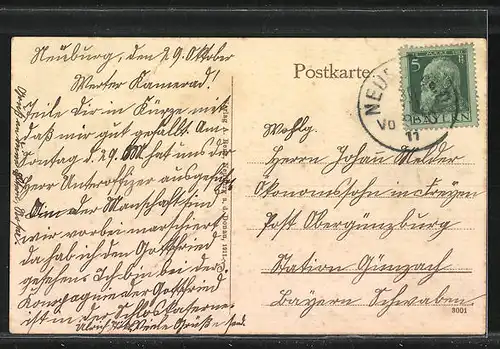 Neuburg, den 29. Oktober
Werter Kamerad!
Teile Dir in Kürze mit
daß mir gut gefällt. Am
Sontag d. 29. hat uns der
Herr Unteroffizer ausgeführt
der Manschaft sind
wir vorben marschiert
da hab ich den Gottfried
gesehen. Ich bin bei der
Kompagnie der Gottfried
ist in der Schloskaserne
Viele Grüße
Postkarte
5
BAYERN
NEU
11
Wohlg.
Herrn Johan Melder
Ökonomssohn in Freyen
Post Obergünzburg
Station Günzach
Bayern Schwaben
3001